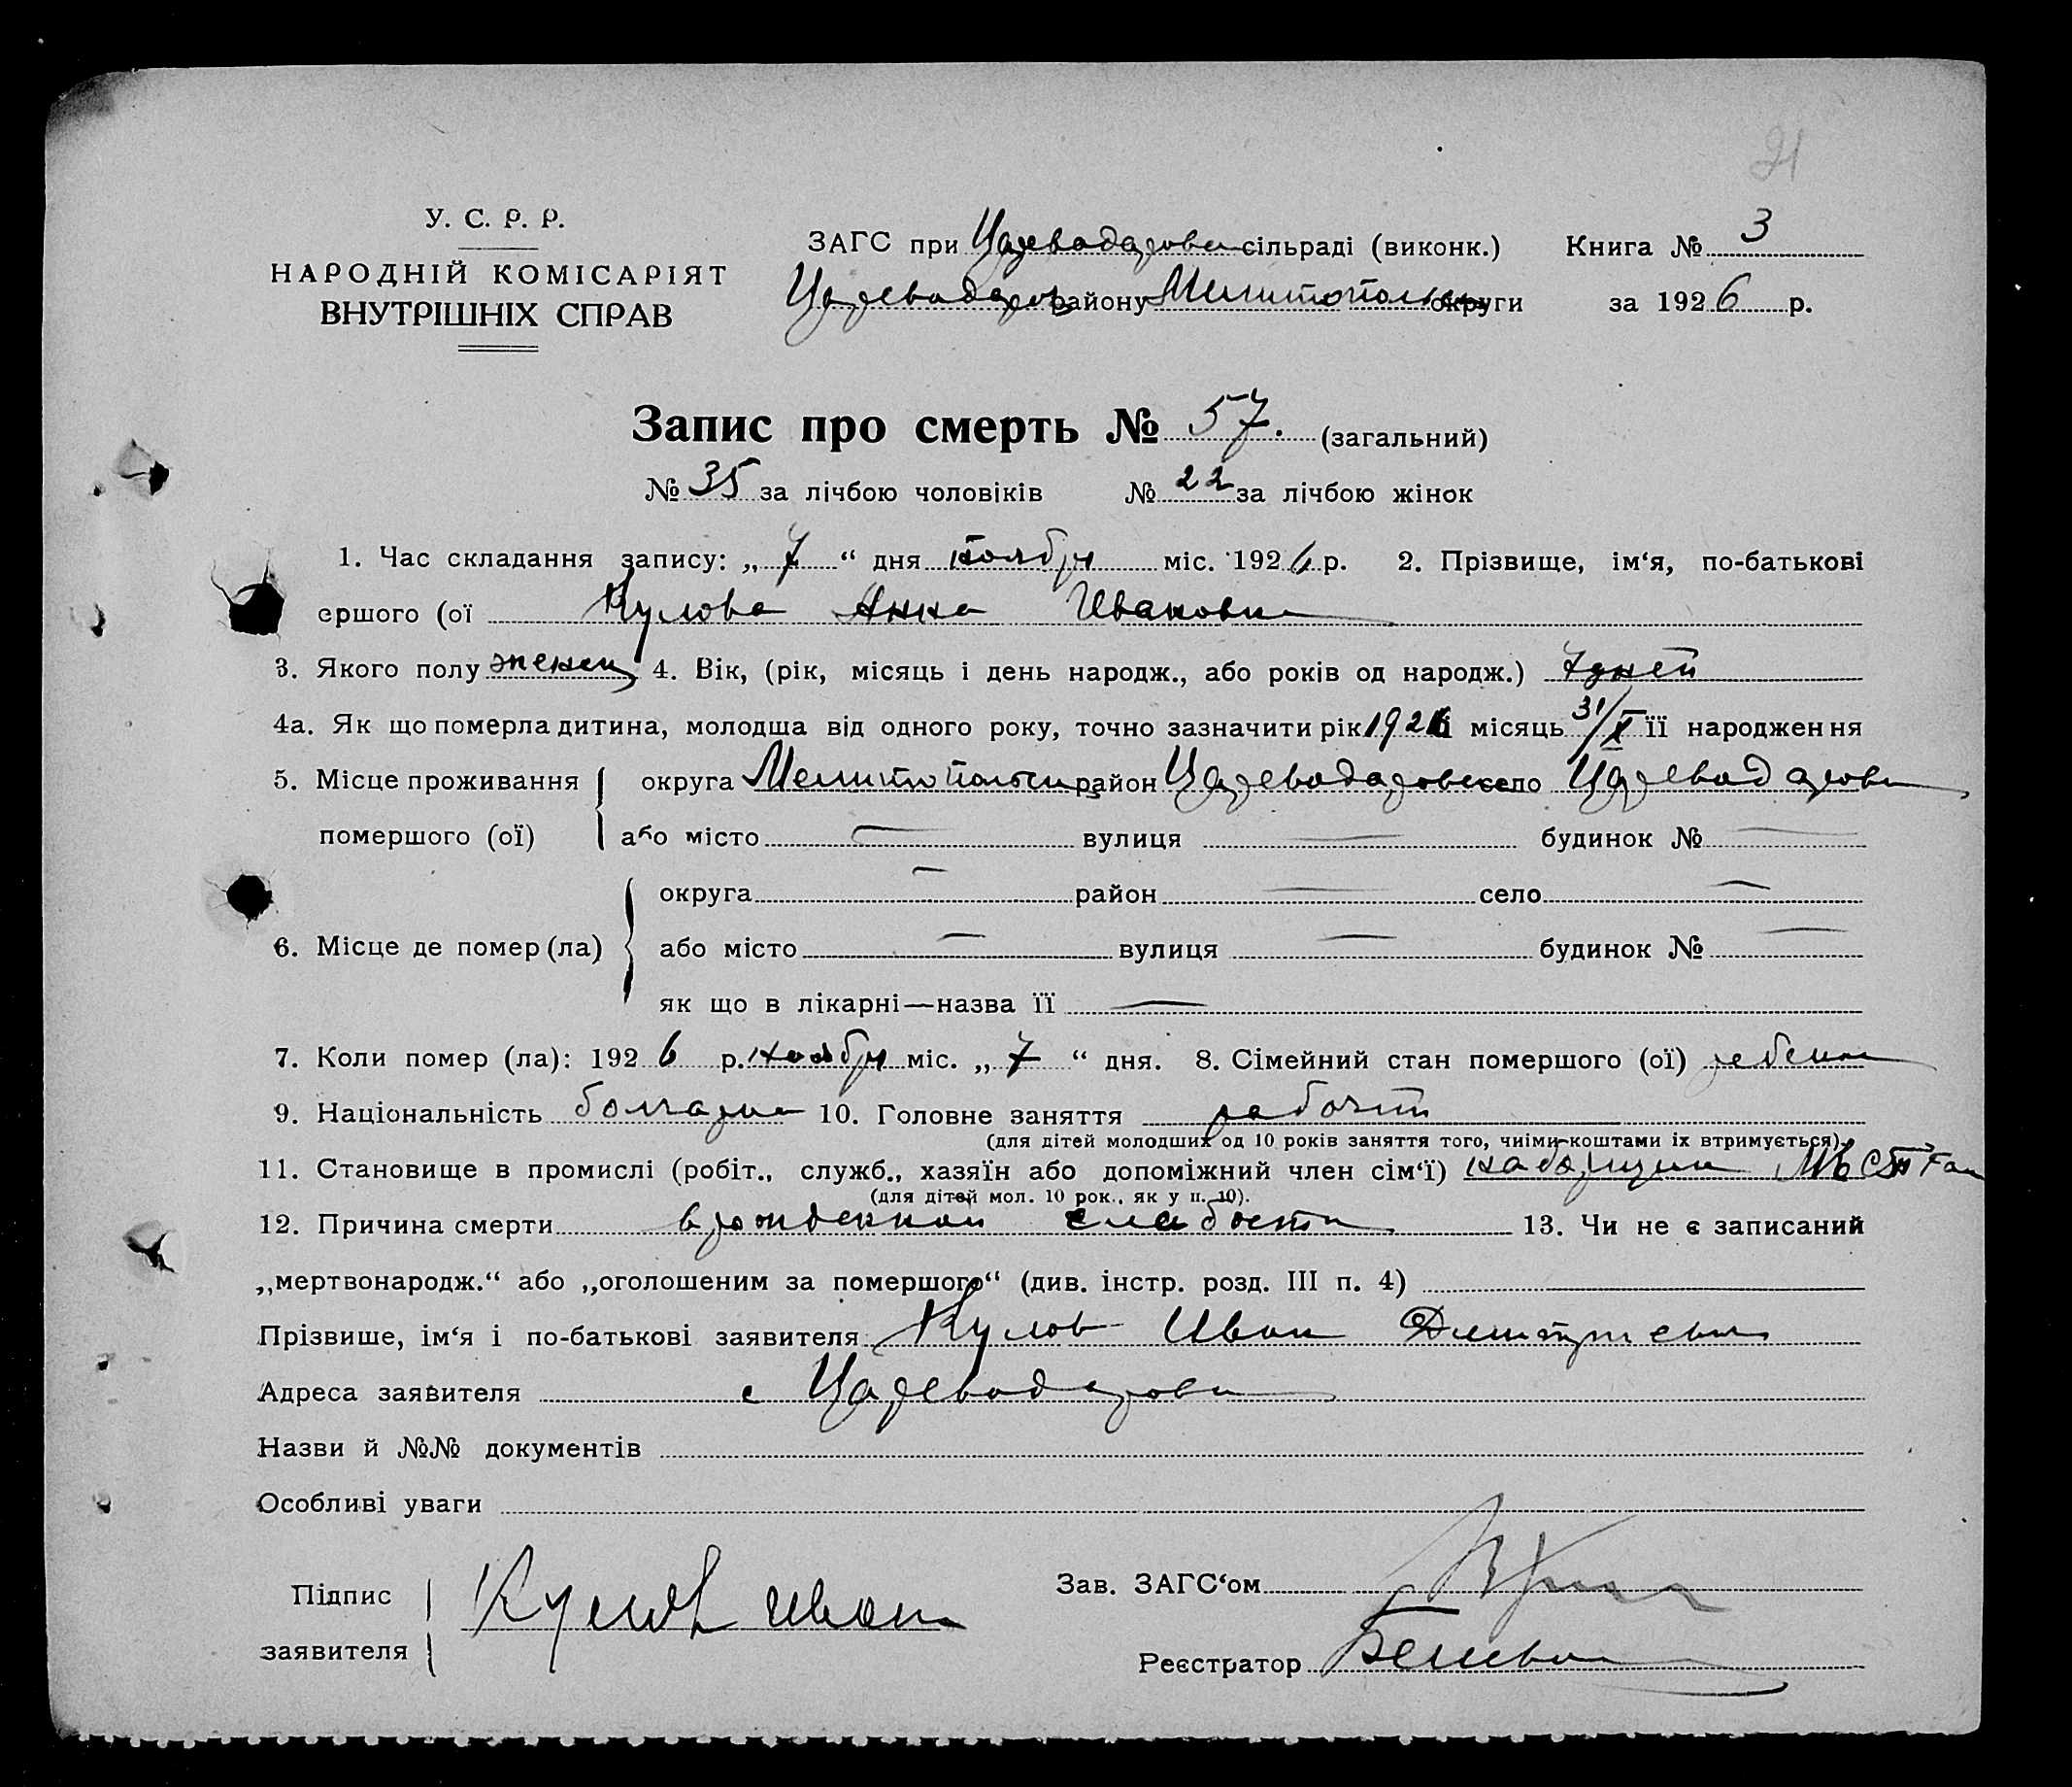 21
У. С. Р. Р.
НАРОДНІЙ КОМІСАРІЯТ
ВНУТРІШНІХ СПРАВ
ЗАГС при Цареводаровск сільраді (виконк.) Книга № 3
Цареводаров району Мелитопольск округи за 1926 р.
Запис про смерть № 57. (загальний)
№ 35 за лічбою чоловіків № 22 за лічбою жінок
1. Час складання запису: „ 7 “ дня ноября міс. 1926 р. 2. Прізвище, ім‘я, по-батькові
ершого (ої Кулова Анна Ивановна
3. Якого полу женск 4. Вік, (рік, місяць і день народж., або років од народж.) 7 дней
4а. Як що померла дитина, молодша від одного року, точно зазначити рік 1926 і місяць 31/X її народження
5. Місце проживання округа Мелитопольск район Цареводаровск село Цареводаровк
помершого (ої) або місто — вулиця — будинок № —
округа — район — село —
6. Місце де помер (ла) або місто — вулиця — будинок № —
як що в лікарні—назва її —
7. Коли помер (ла): 1926 р. ноября міс. „ 7 “ дня. 8. Сімейний стан помершого (ої) ребенок
9. Національність болгарка 10. Головне заняття рабочий
(для дітей молодших од 10 років заняття того, чиїми коштами їх втримується).
11. Становище в промислі (робіт., служб., хазяїн або допоміжний член сім‘ї) наборщик
(для дітей мол. 10 рок., як у п. 10).
12. Причина смерти врожденная слабость 13. Чи не є записаний
„мертвонародж.“ або „оголошеним за помершого“ (див. інстр. розд. III п. 4)
Прізвише, ім‘я і по-батькові заявителя: Кулов Иван Дмитриевич
Адреса заявителя с Цареводаровк
Назви й №№ документів
Особливі уваги
Підпис
заявителя Кулов Иван
Зав. ЗАГС‘ом
Реєстратор